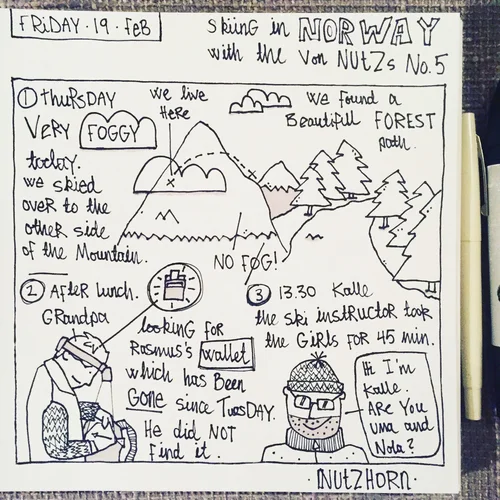 FRIDAY · 19 · FEB
skiing in NORWAY
with the Von NUTZs No.5
① THURSDAY
VERY FOGGY
today.
we skied
over to the
other side
of the Mountain.
we live
HERE
we found a
Beautiful FOREST
path.
NO FOG!
② After lunch.
GRandpa
looking for
Rasmus's wallet
which has Been
GONE since Tuesday.
He did NOT
Find it.
③ 13.30 Kalle
the ski instructor took
the Girls for 45 min.
Hi I'm
Kalle.
ARe You
Una and
Nola?
· NUTZHORN ·